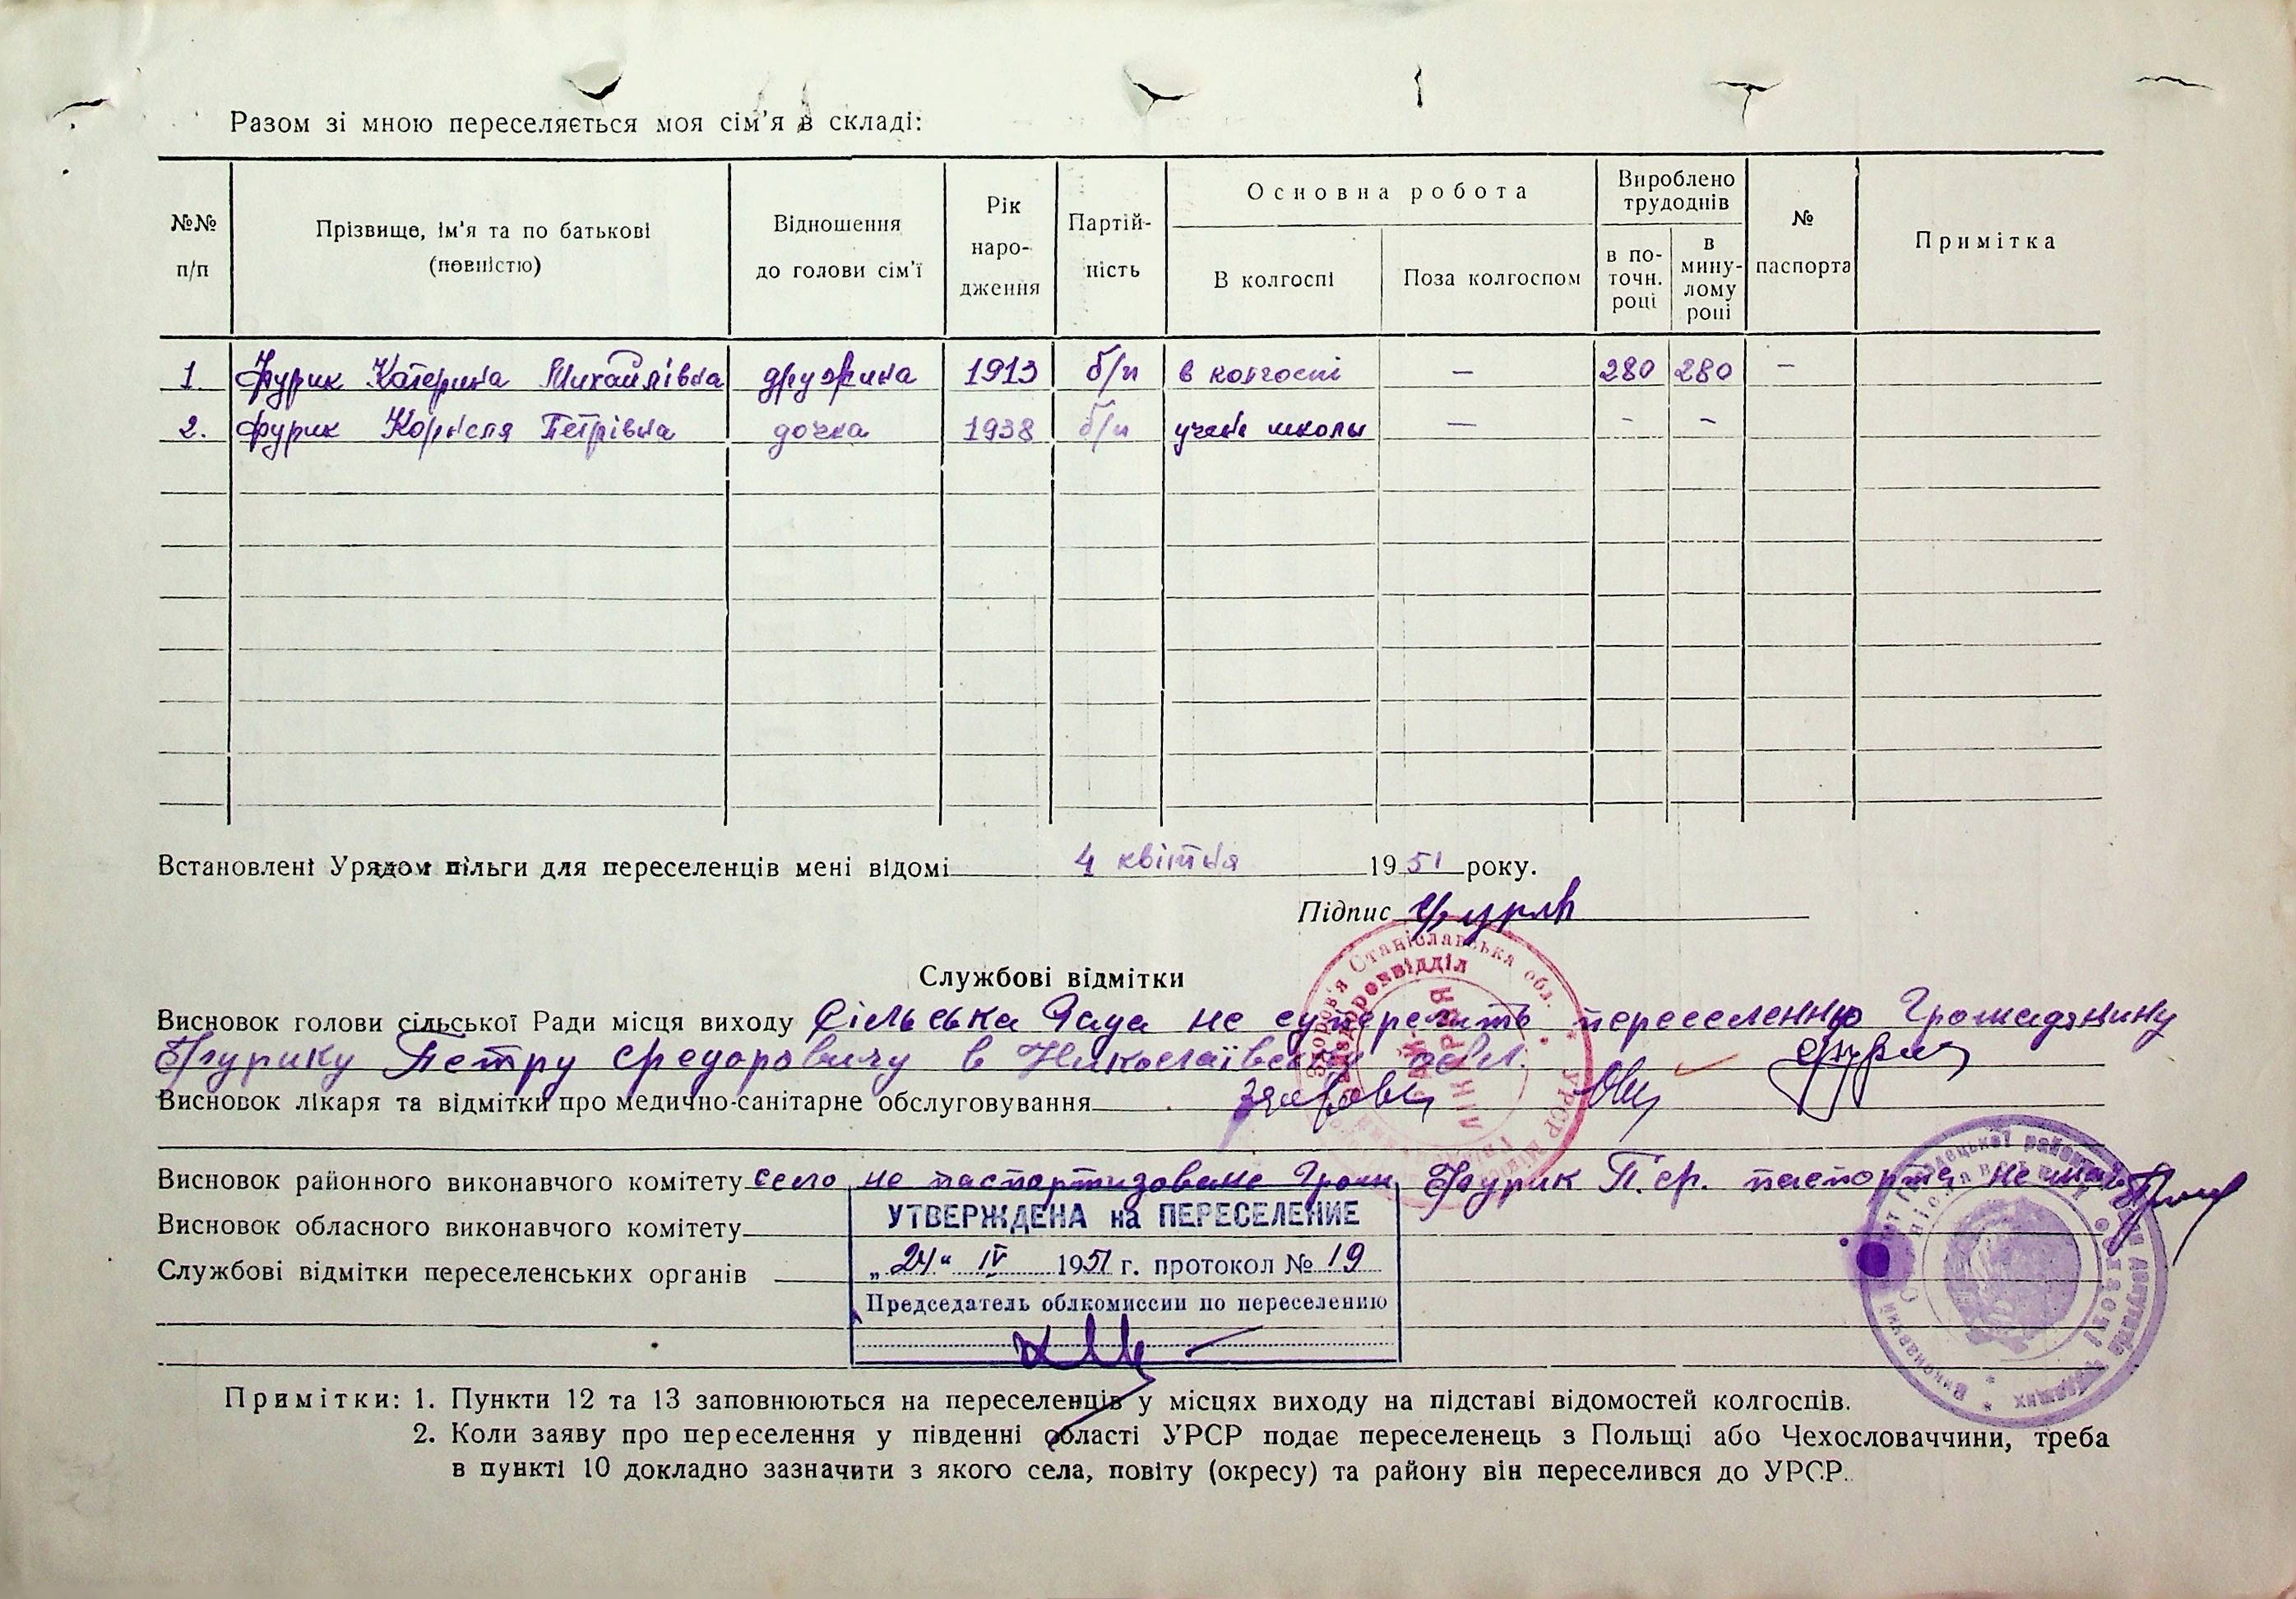 Разом зі мною переселяється моя сім'я в складі:
№№ п/п
Прізвище, ім'я та по батькові (повністю)
Відношення до голови сім'ї
Рік народження
Партійність
Основна робота
В колгоспі
Поза колгоспом
Вироблено трудоднів
в поточн. році
в минулому році
№ паспорта
Примітка
1. Фурик Катерина Михайлівна дружина 1913 б/п в колгоспі — 280 280 —
2. Фурик Корнеля Петрівна дочка 1938 б/п учень школы — - -
Встановлені Урядом пільги для переселенців мені відомі 4 квітня 1951 року.
Підпис
Службові відмітки
Висновок голови сільської Ради місця виходу Сільська Рада не суперечить переселенню Громадянину
Фурику Петру Федоровичу в Николаївську обл.
Висновок лікаря та відмітки про медично-санітарне обслуговування
Висновок районного виконавчого комітету село не паспортизоване Гром. Фурик П.Ф. паспорта немає
Висновок обласного виконавчого комітету
Службові відмітки переселенських органів
УТВЕРЖДЕНА на ПЕРЕСЕЛЕНИЕ
„24“ IV 1951 г. протокол № 19
Председатель облкомиссии по переселению
Станіславська обл.
Примітки: 1. Пункти 12 та 13 заповнюються на переселенців у місцях виходу на підставі відомостей колгоспів.
2. Коли заяву про переселення у південні області УРСР подає переселенець з Польщі або Чехословаччини, треба
в пункті 10 докладно зазначити з якого села, повіту (окресу) та району він переселився до УРСР.